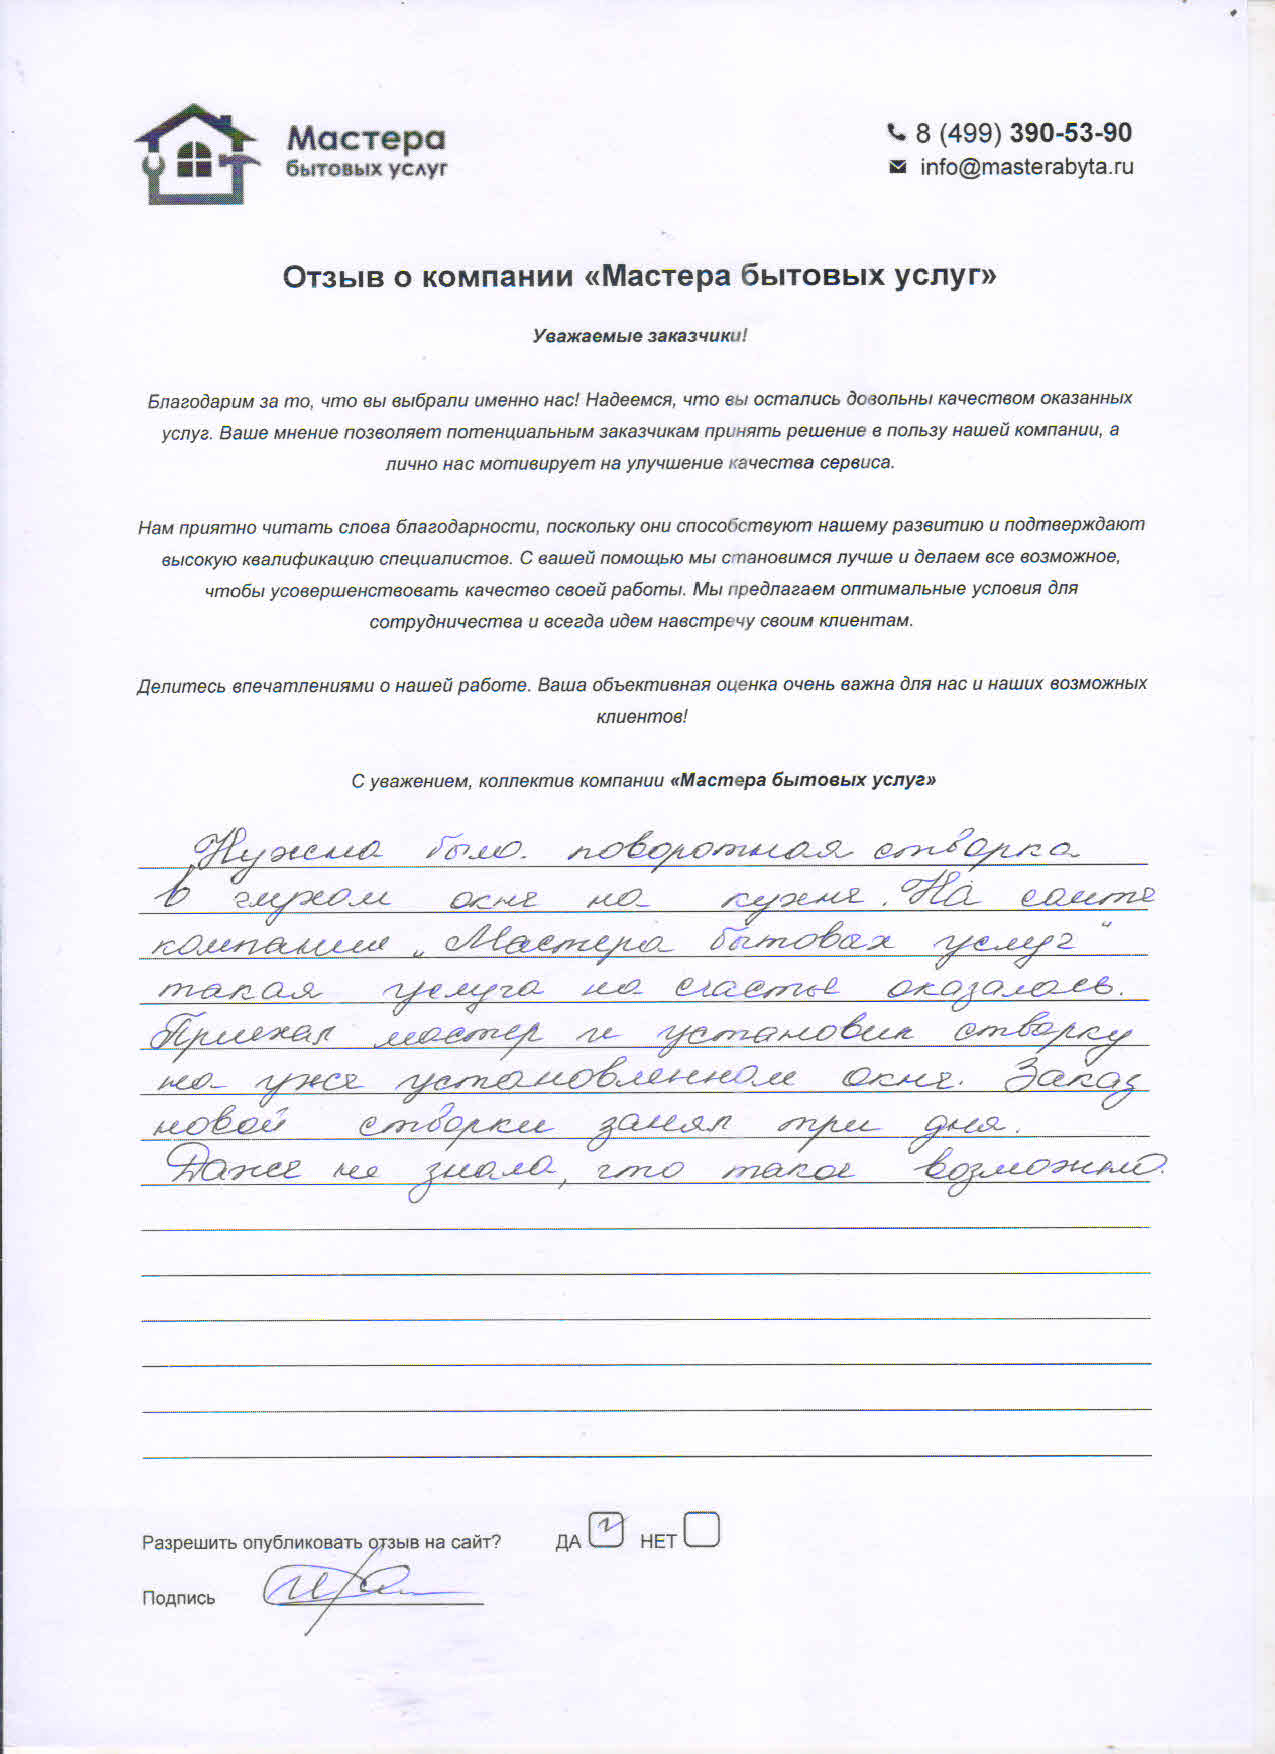 Мастера
бытовых услуг
8 (499) 390-53-90
info@masterabyta.ru
Отзыв о компании «Мастера бытовых услуг»
Уважаемые заказчики!
Благодарим за то, что вы выбрали именно нас! Надеемся, что вы остались довольны качеством оказанных
услуг. Ваше мнение позволяет потенциальным заказчикам принять решение в пользу нашей компании, а
лично нас мотивирует на улучшение качества сервиса.
Нам приятно читать слова благодарности, поскольку они способствуют нашему развитию и подтверждают
высокую квалификацию специалистов. С вашей помощью мы становимся лучше и делаем все возможное,
чтобы усовершенствовать качество своей работы. Мы предлагаем оптимальные условия для
сотрудничества и всегда идем навстречу своим клиентам.
Делитесь впечатлениями о нашей работе. Ваша объективная оценка очень важна для нас и наших возможных
клиентов!
С уважением, коллектив компании «Мастера бытовых услуг»
Нужна было поворотная створка
в глухом окне на кухне. На сайте
компании „Мастера бытовых услуг"
такая услуга на счастье оказалась.
Приехал мастер и установил створку
на уже установленном окне. Заказ
новой створки занял три дня.
Даже не знала, что такое возможно.
Разрешить опубликовать отзыв на сайт? ДА НЕТ
Подпись